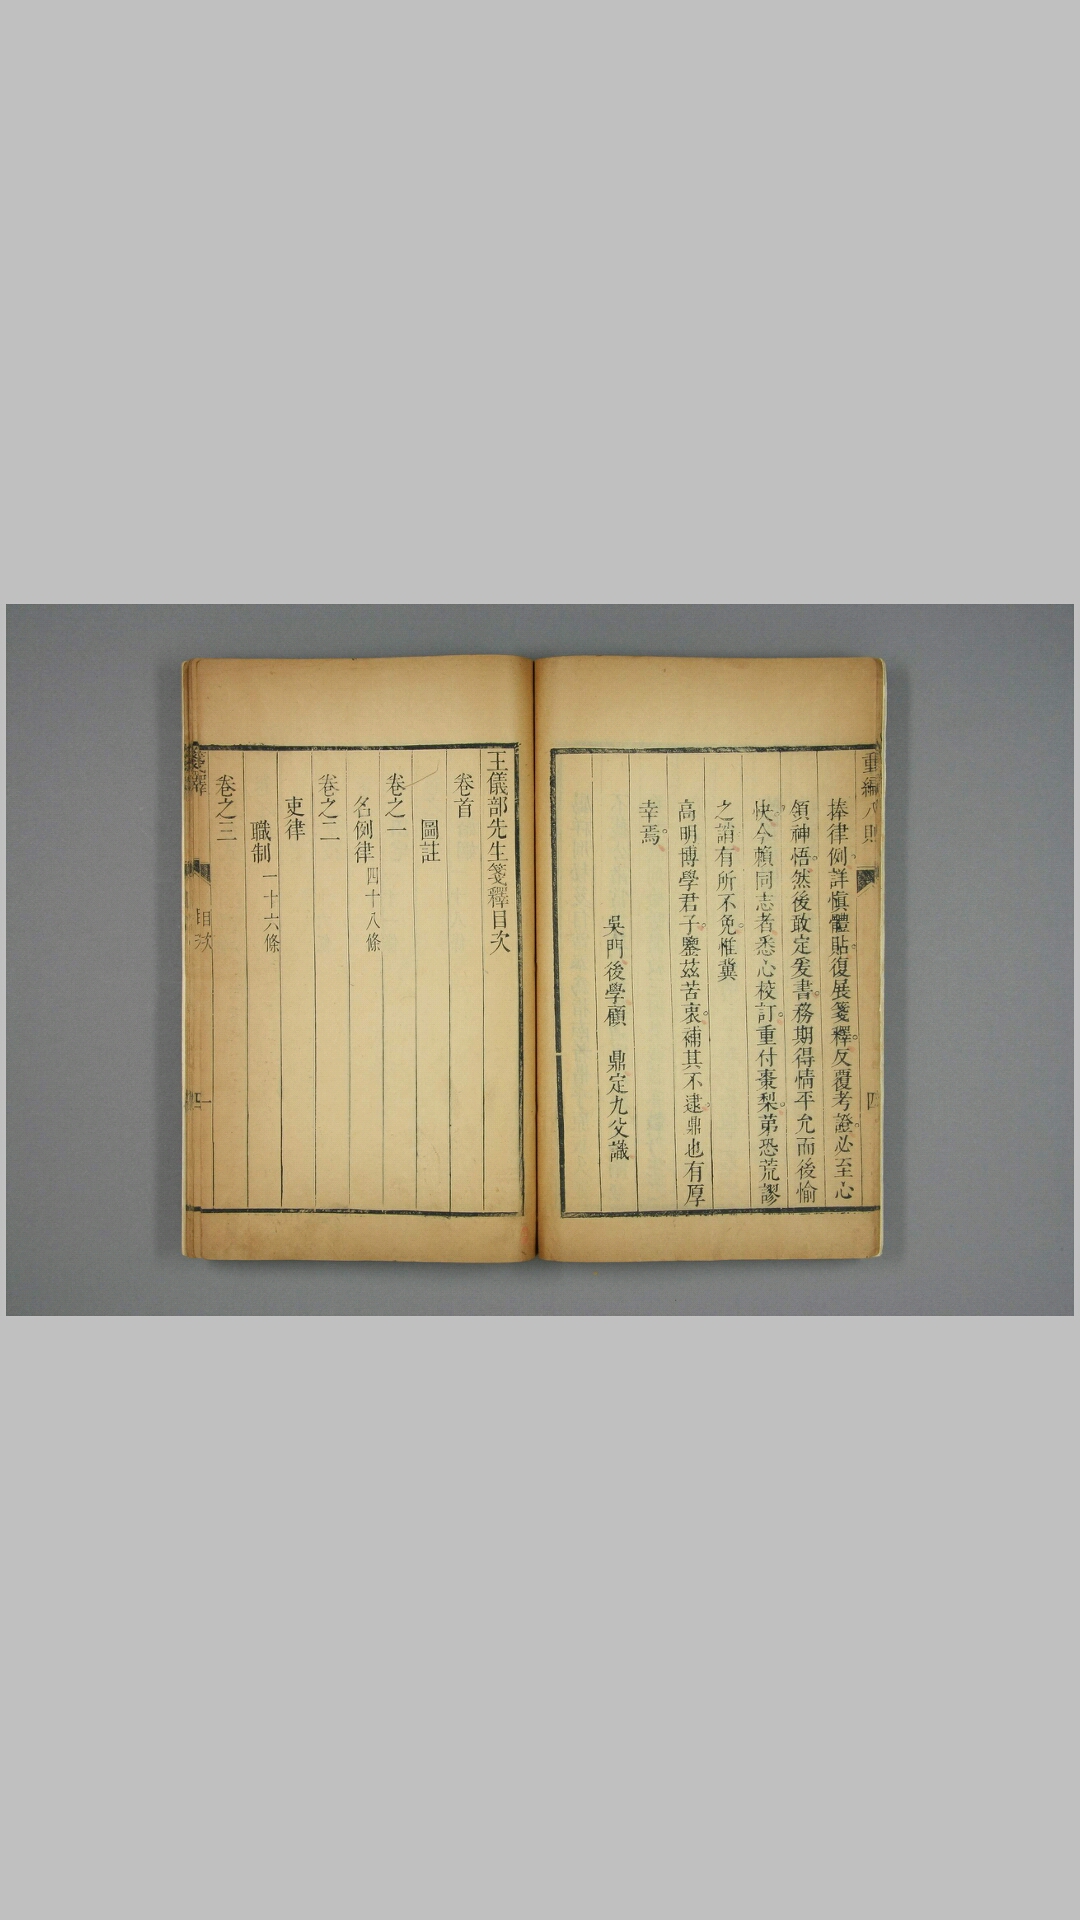 重編八則
四
捧律例詳慎體貼復展箋釋反覆考證必至心
領神悟然後敢定爰書務期得情平允而後愉
快今賴同志者悉心校訂重付棗梨第恐荒謬
之誚有所不免惟冀
高明博學君子鑒茲苦衷補其不逮鼎也有厚
幸焉
吳門後學顧 鼎定九父識
王儀部先生箋釋目次
卷首
圖註
卷之一
名例律四十八條
卷之二
吏律
職制一十六條
卷之三
箋釋
目次
一